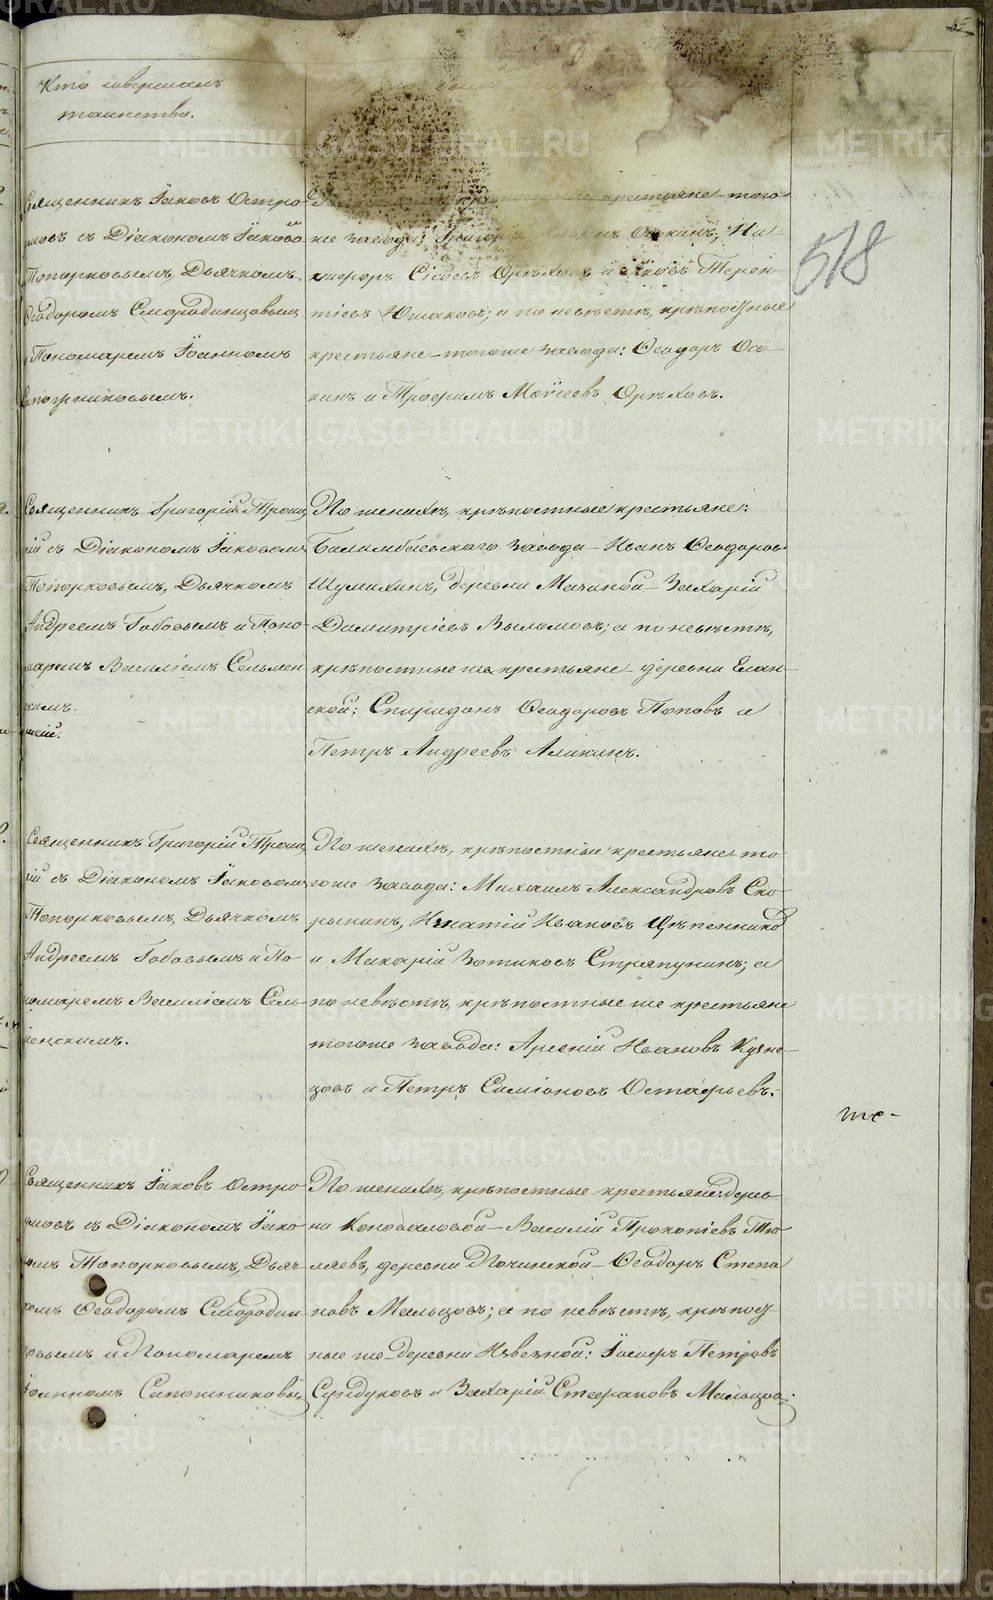 65
Кто совершалъ
таинство.
Священникъ Іаковъ Остро-
умовъ съ Діакономъ Іаково
Топорковымъ, Дьячкомъ
Ѳеодоромъ Смородинцовымъ
и Пономаремъ Іоанномъ
Сапожниковымъ.
крестьяне того
же завода: Григорій Ѳокинъ, Ни-
кифоръ Сісоевъ Орѣховъ и Яковъ Терен-
тіевъ Юшаковъ; а по невѣстѣ, крѣпостные
крестьяне тогоже завода: Ѳеодоръ Ѳо-
кинъ и Трофимъ Моѵсеевъ Орѣховъ.
518
Священникъ Григорій Троиц
кій съ Діакономъ Іаковомъ
Топорковымъ, Дьячкомъ
Андреемъ Бабовымъ и Поно-
маремъ Василіемъ Сельмен
скимъ.
По женихѣ, крѣпостные крестьяне:
Билимбаевскаго завода Иванъ Ѳеодоровъ
Шумихинъ, деревни Мачиной Захарій
Димитріевъ Выломовъ; а по невѣстѣ,
крѣпостные же крестьяне деревни Елан-
ской: Спиридонъ Ѳеодоровъ Поповъ и
Петръ Андреевъ Аликинъ.
Священникъ Григорій Троиц
кій съ Діакономъ Іаковомъ
Топорковымъ, Дьячкомъ
Андреемъ Бабовымъ и По-
номаремъ Василіемъ Сель-
менскимъ.
По женихѣ, крѣпостные крестьяне то-
гоже завода: Михаилъ Александровъ Ско-
рынинъ, Игнатій Ивановъ Щепенников
и Макарій Зотиковъ Стряпунинъ; а
по невѣстѣ, крѣпостные же крестьяне
тогоже завода: Арсеній Ивановъ Кузне-
цовъ и Петръ Симіоновъ Остафьевъ.
те-
Священникъ Іаковъ Остро-
умовъ съ Діакономъ Іако-
вомъ Топорковымъ, Дьяч-
комъ Ѳеодоромъ Смородин-
цовымъ и Пономаремъ
Іоанномъ Сапожниковым
По женихѣ, крѣпостные крестьяне: дерев-
ни Коноваловой Василій Прокопіевъ Тю-
ляевъ, деревни Починской Ѳеодоръ Степа-
новъ Мальцовъ; а по невѣстѣ, крѣпост-
ные же деревни Извезной: Іосифъ Петровъ
Сундуковъ и Захарій Стефановъ Мальцовъ.
METRIKI.GASO-URAL.RU